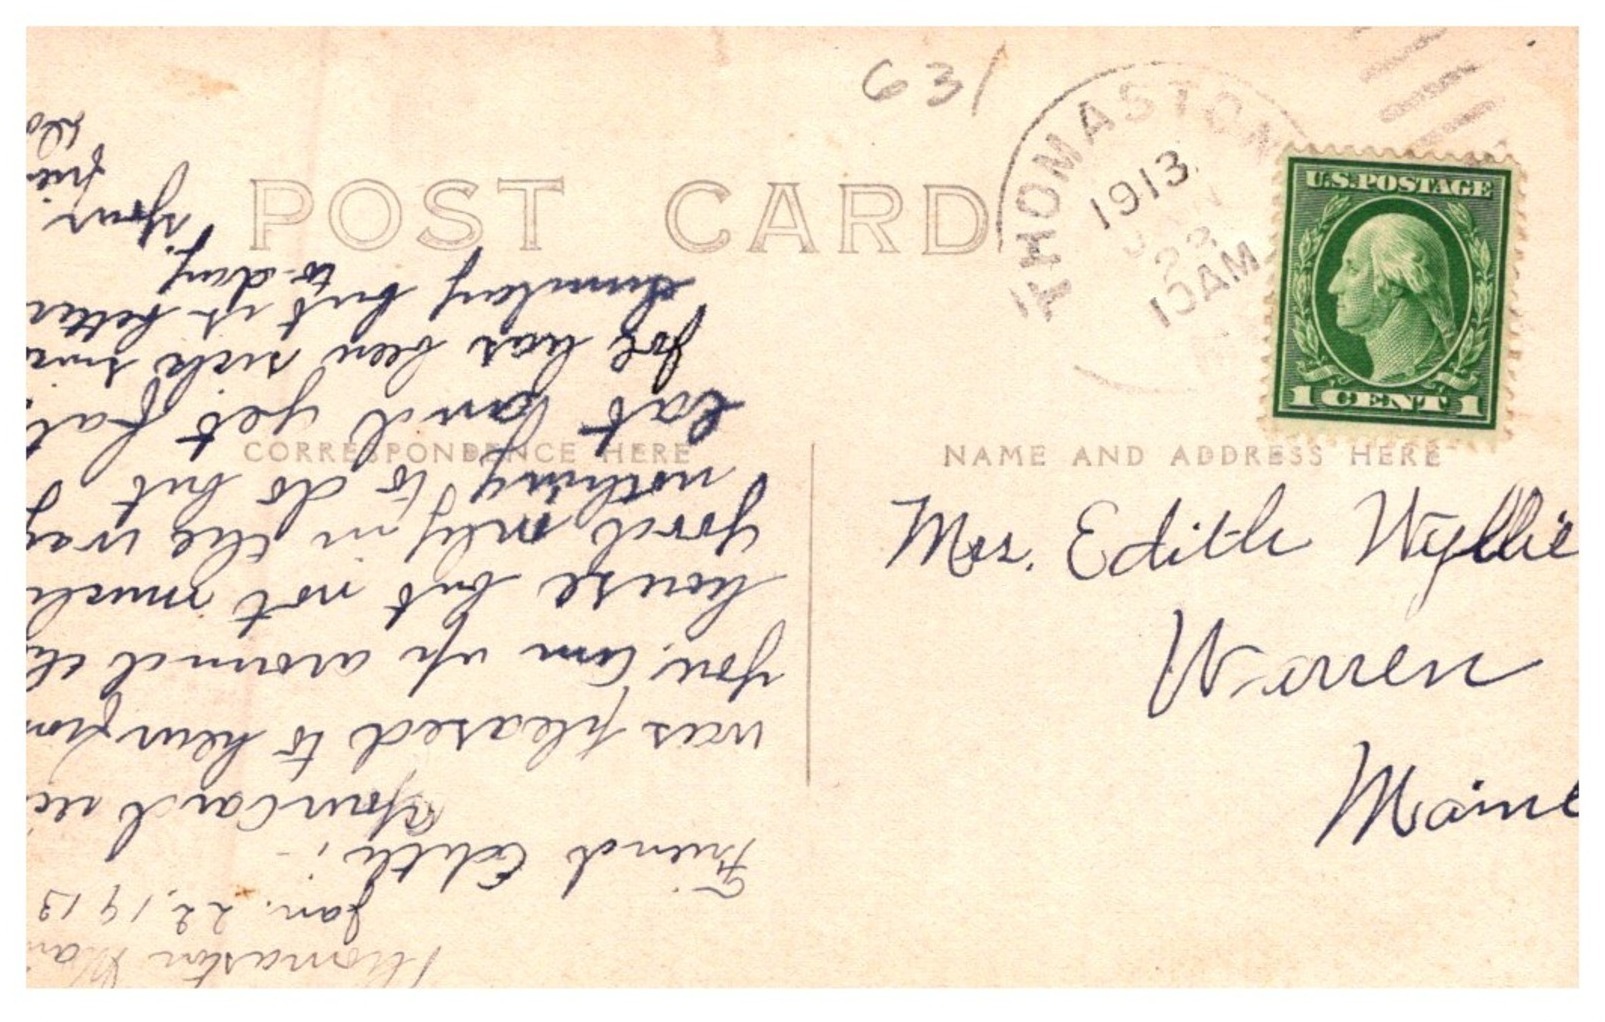 631
POST CARD
THOMASTON
1913
JAN
22
10AM
U.S. POSTAGE
1 CENT 1
CORRESPONDENCE HERE
NAME AND ADDRESS HERE
Mrs. Edith Wyllie
Warren
Maine
Thomaston Mai
Jan. 22, 1913
Friend Edith;-
Your card rec
was pleased to hear from
you, am up around the
house but not much
good only in the way
nothing to do but
eat and get fat.
Joe has been sick since
Sunday but is better
to-day.
Your
frien